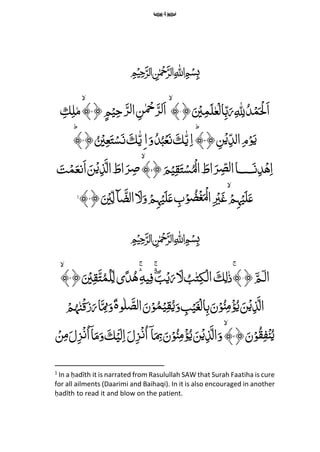 بِسْمِ اللهِ الرَّحْمٰنِ الرَّحِيْمِ
اَلْحَمْدُ لِلّٰهِ رَبِّ الْعٰلَمِيْنَ ﴿﴾ۙ الرَّحْمٰنِ الرَّحِيْمِ ﴿﴾ۙ مٰلِكِ
يَوْمِ الدِّيْنِ ﴿﴾ؕ اِيَّاكَ نَعْبُدُ وَاِيَّاكَ نَسْتَعِيْنُ ﴿﴾ؕ
اِهْدِنَا الصِّرَاطَ الْمُسْتَقِيْمَ ﴿﴾ۙ صِرَاطَ الَّذِيْنَ اَنْعَمْتَ
عَلَيْهِمْ ۙ غَيْرِ الْمَغْضُوْبِ عَلَيْهِمْ وَلَا الضَّآلِّيْنَ ﴿﴾ 1
بِسْمِ اللهِ الرَّحْمٰنِ الرَّحِيْمِ
الٓمّٓ ﴿﴾ۚ ذٰلِكَ الْكِتٰبُ لَا رَيْبَ ۛۖ فِيْهِ ۛۚ هُدًى لِّلْمُتَّقِيْنَ ﴿﴾ۙ
الَّذِيْنَ يُؤْمِنُوْنَ بِالْغَيْبِ وَيُقِيْمُوْنَ الصَّلٰوةَ وَمِمَّا رَزَقْنٰهُمْ
يُنْفِقُوْنَ ﴿﴾ۙ وَالَّذِيْنَ يُؤْمِنُوْنَ بِمَآ اُنْزِلَ اِلَيْكَ وَمَآ اُنْزِلَ مِنْ
1 In a ḥadīth it is narrated from Rasulullah SAW that Surah Faatiha is cure
for all ailments (Daarimi and Baihaqi). In it is also encouraged in another
ḥadīth to read it and blow on the patient.